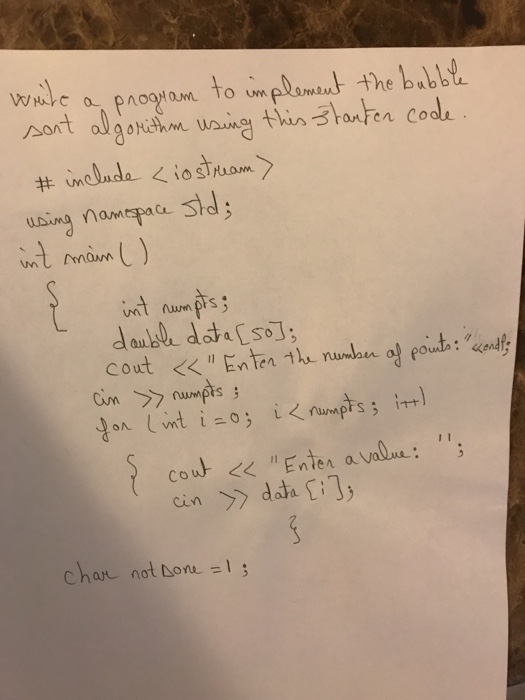 Write a program to implement the bubble
sort algorithm using this starter code.
# include <iostream>
using namespace std;
int main()
{
int numpts;
double data[50];
cout << "Enter the number of points:"<<endl;
cin >> numpts;
for (int i=0; i<numpts; i++)
{ cout << "Enter a value: ";
cin >> data [i];
}
char notDone =1;